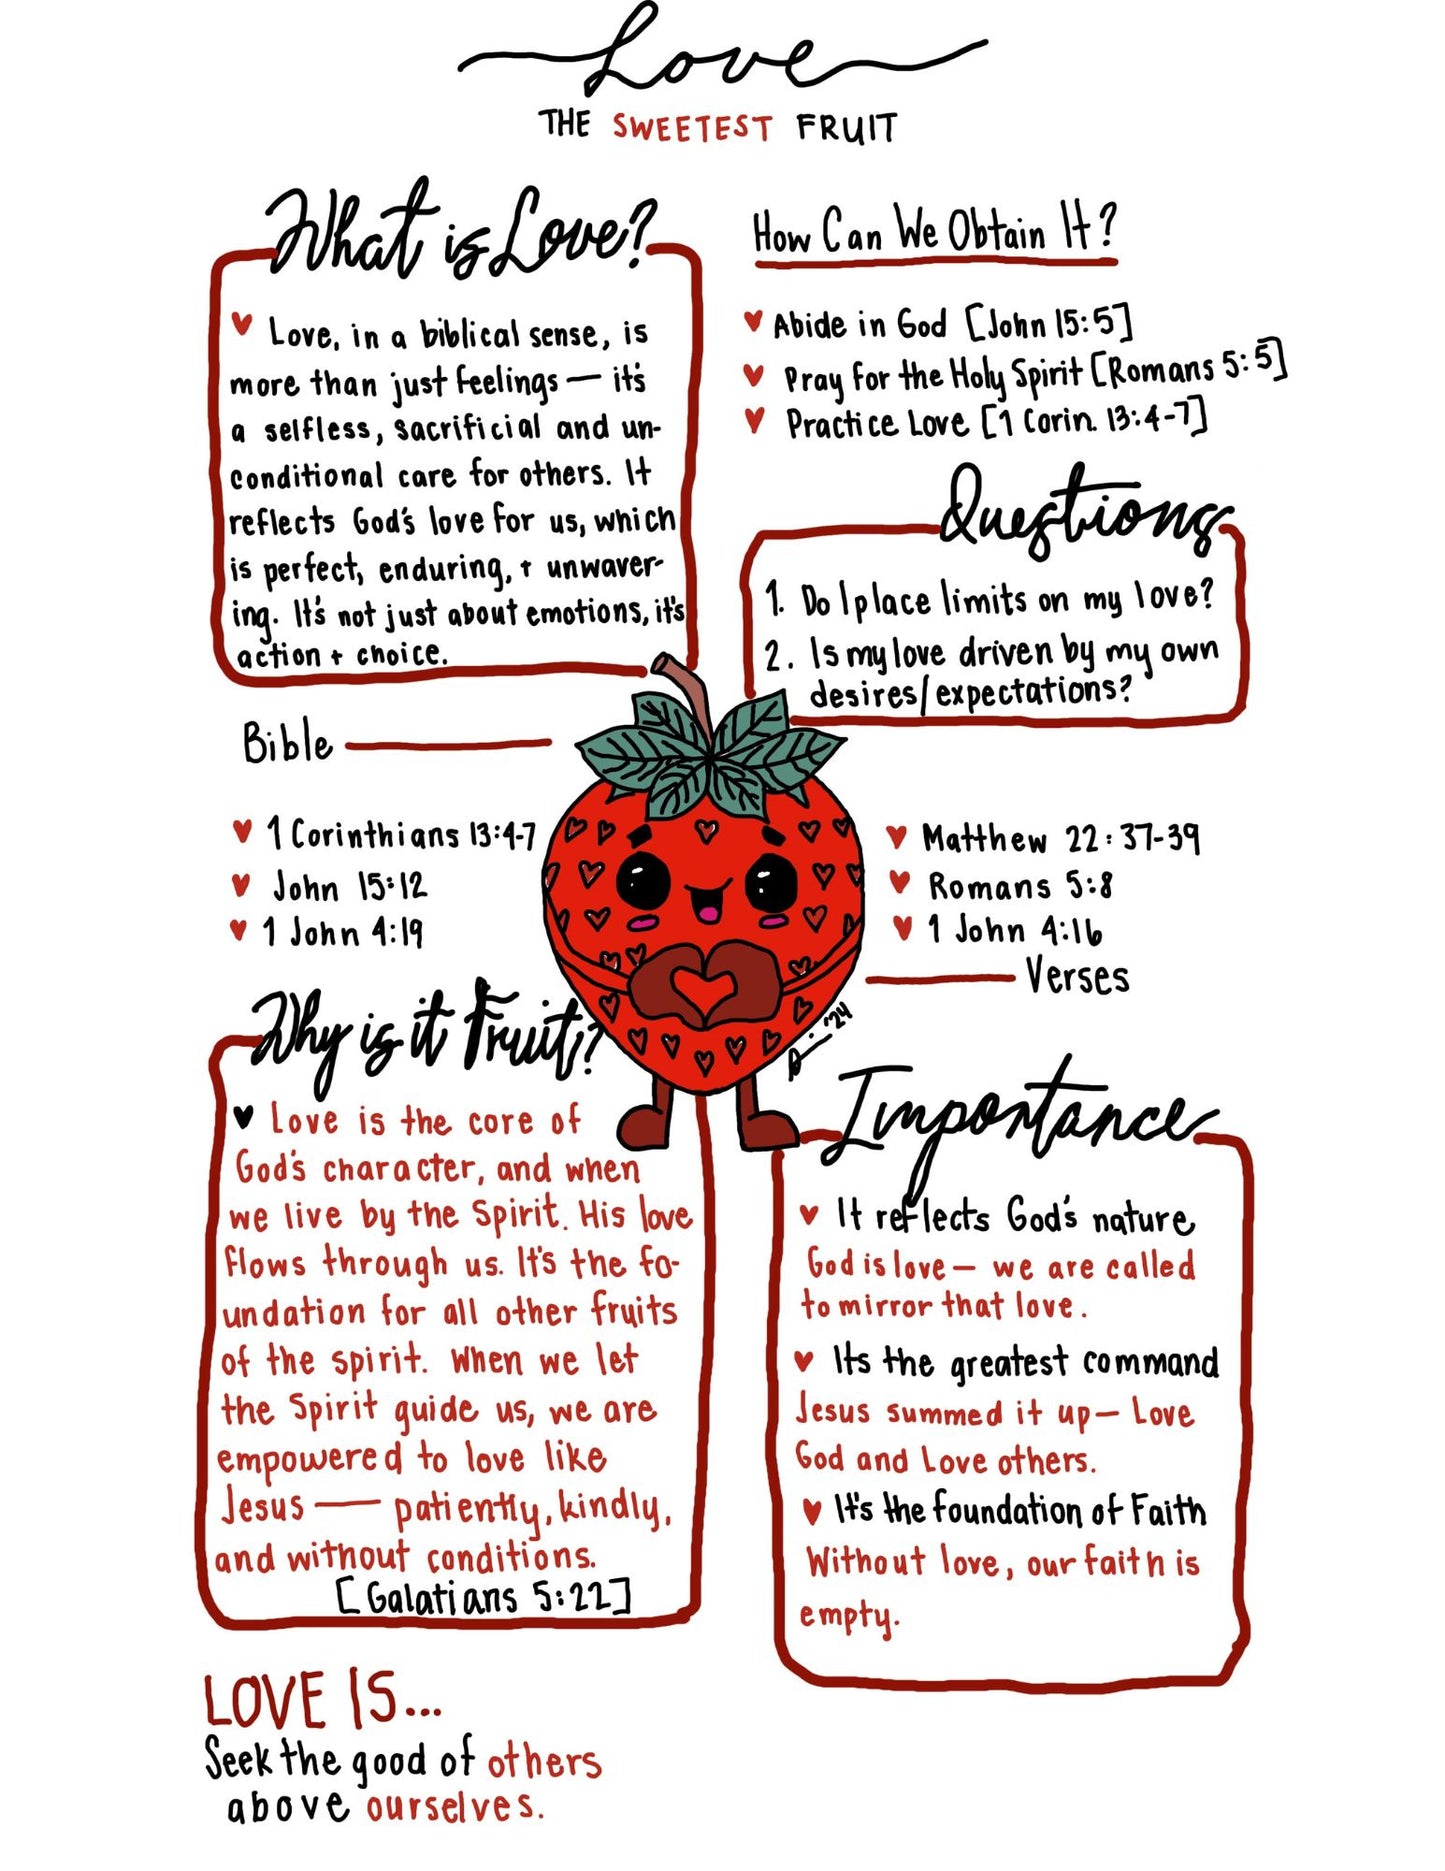 Love
THE SWEETEST FRUIT
What is Love?
Love, in a biblical sense, is
more than just feelings — it's
a selfless, sacrificial and un-
conditional care for others. It
reflects God's love for us, which
is perfect, enduring, + unwaver-
ing. It's not just about emotions, it's
action + choice.
How Can We Obtain It?
Abide in God [John 15:5]
Pray for the Holy Spirit [Romans 5:5]
Practice Love [1 Corin. 13:4-7]
Questions
1. Do I place limits on my love?
2. Is my love driven by my own
desires/expectations?
Bible
1 Corinthians 13:4-7
John 15:12
1 John 4:19
Matthew 22:37-39
Romans 5:8
1 John 4:16
Verses
Why is it Fruit?
Love is the core of
God's character, and when
we live by the Spirit. His love
flows through us. It's the fo-
undation for all other fruits
of the spirit. When we let
the Spirit guide us, we are
empowered to love like
Jesus — patiently, kindly,
and without conditions.
[Galatians 5:22]
'24
Importance
It reflects God's nature
God is love — we are called
to mirror that love.
Its the greatest command
Jesus summed it up — Love
God and Love others.
It's the foundation of Faith
Without love, our faith is
empty.
LOVE IS...
Seek the good of others
above ourselves.